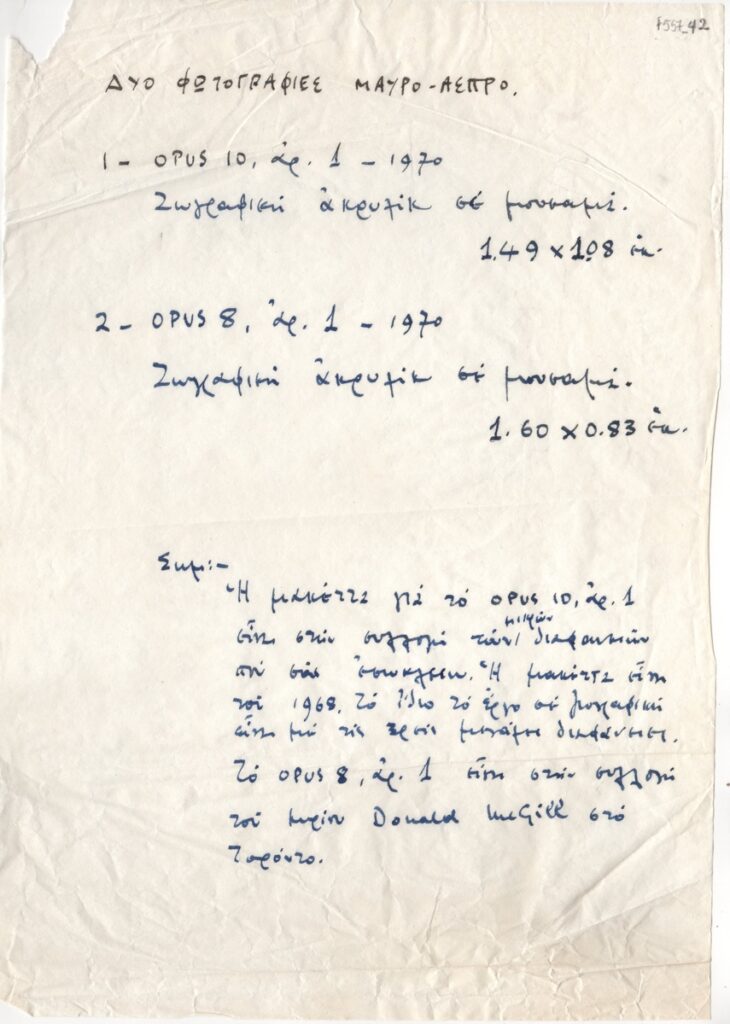 F557_42
ΔΥΟ ΦΩΤΟΓΡΑΦΙΕΣ ΜΑΥΡΟ-ΑΣΠΡΟ.
1 - OPUS 10, ἀρ. 1 - 1970
Ζωγραφική ἀκρυλίκ σέ μουσαμά.
1.49 x 1.08 ἑκ.
2 - OPUS 8, ἀρ. 1 - 1970
Ζωγραφική ἀκρυλίκ σέ μουσαμά.
1.60 x 0.83 ἑκ.
Σημ:-
Ἡ μακέττα γιά τό OPUS 10, ἀρ. 1
μικρῶν
εἶναι στήν συλλογή τῶν διαφανειῶν
πού σᾶς ἐσωκλείω. Ἡ μακέττα εἶναι
τοῦ 1968. Τό ἴδιο τό ἔργο σέ ζωγραφική
εἶναι μέ τίς τρεῖς μεγάλες διαφάνειες.
Τό OPUS 8, ἀρ. 1 εἶναι στήν συλλογή
τοῦ κυρίου Donald McGill στό
Τορόντο.